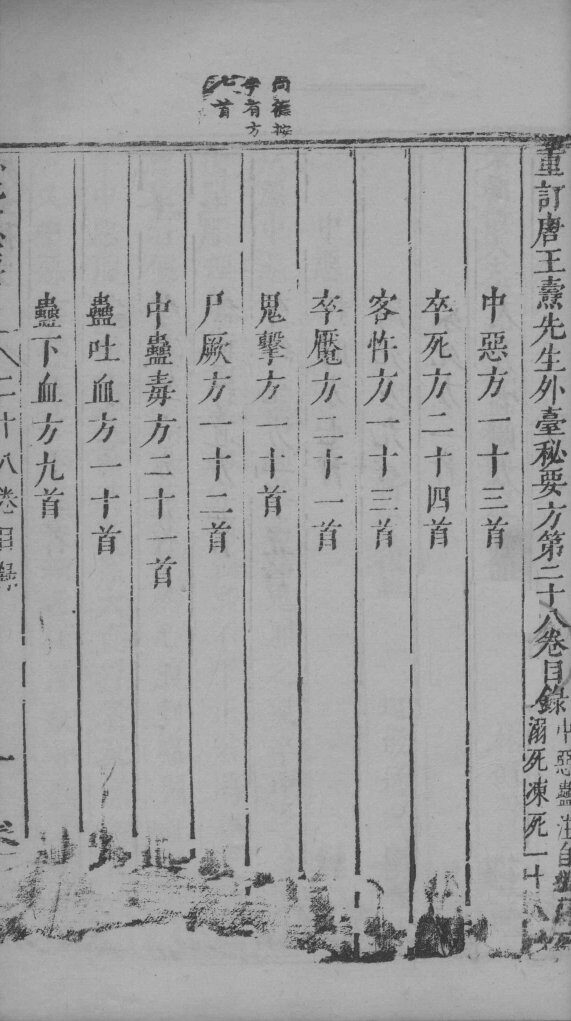 重訂唐王燾先生外臺秘要方第二十八卷目錄
中惡蠱注自縊
溺死凍死一十八
中惡方一十三首
卒死方二十四首
客忤方一十三首
卒魘方二十一首
鬼擊方一十首
尸厥方一十二首
中蠱毒方二十一首
蠱吐血方一十首
蠱下血方九首
二十八卷目錄
尚德按
有方
七首